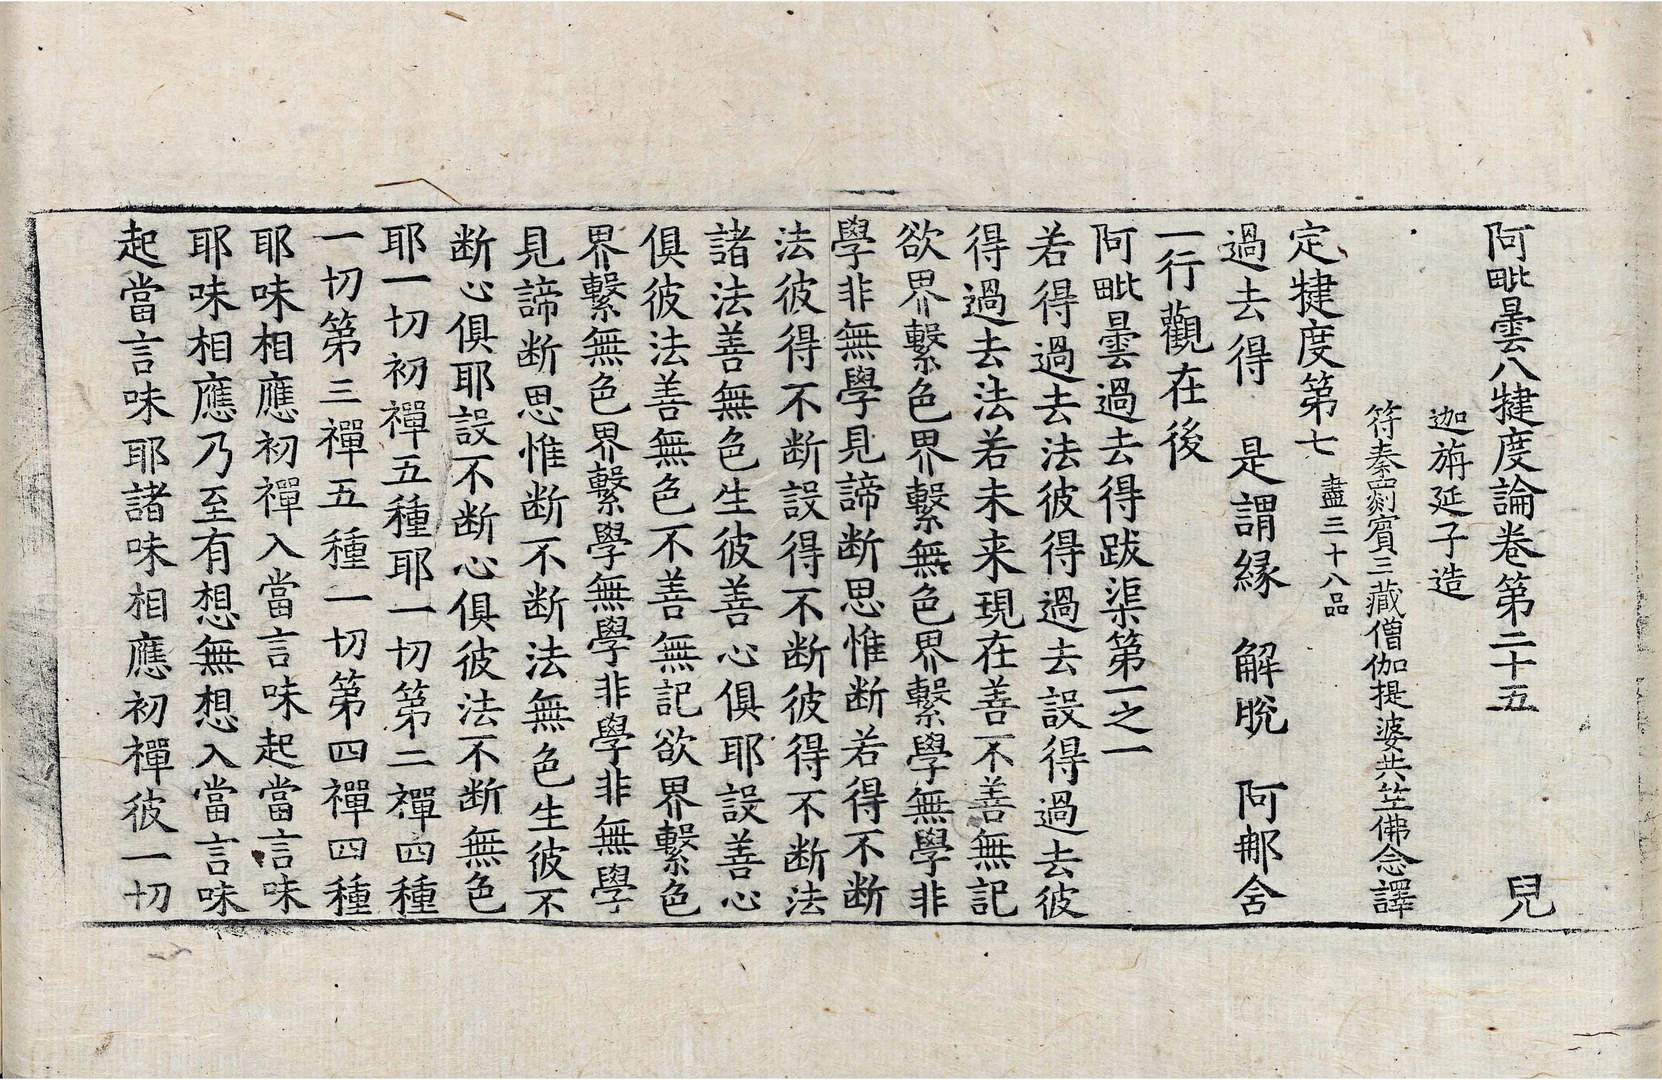 阿毗曇八犍度論卷第二十五 兒
迦旃延子造
符秦罽賓三藏僧伽提婆共竺佛念譯
定犍度第七 盡三十八品
過去得 是謂縁 解脫 阿那舍
一行觀在後
阿毗曇過去得跋渠第一之一
若得過去法彼得過去設得過去彼
得過去法若未来現在善不善無記
欲界繫色界繫無色界繫學無學非
學非無學見諦断思惟断若得不断
法彼得不断設得不断彼得不断法
諸法善無色生彼善心俱耶設善心
俱彼法善無色不善無記欲界繫色
界繫無色界繫學無學非學非無學
見諦断思惟断不断法無色生彼不
断心俱耶設不断心俱彼法不断無色
耶一切初禪五種耶一切第二禪四種
一切第三禪五種一切第四禪四種
耶味相應初禪入當言味起當言味
耶味相應乃至有想無想入當言味
起當言味耶諸味相應初禪彼一切